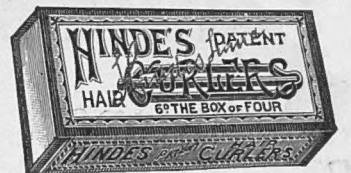 HINDE'S PATENT
HAIR CURLERS
6D THE BOX OF FOUR
HINDE'S HAIR CURLERS.